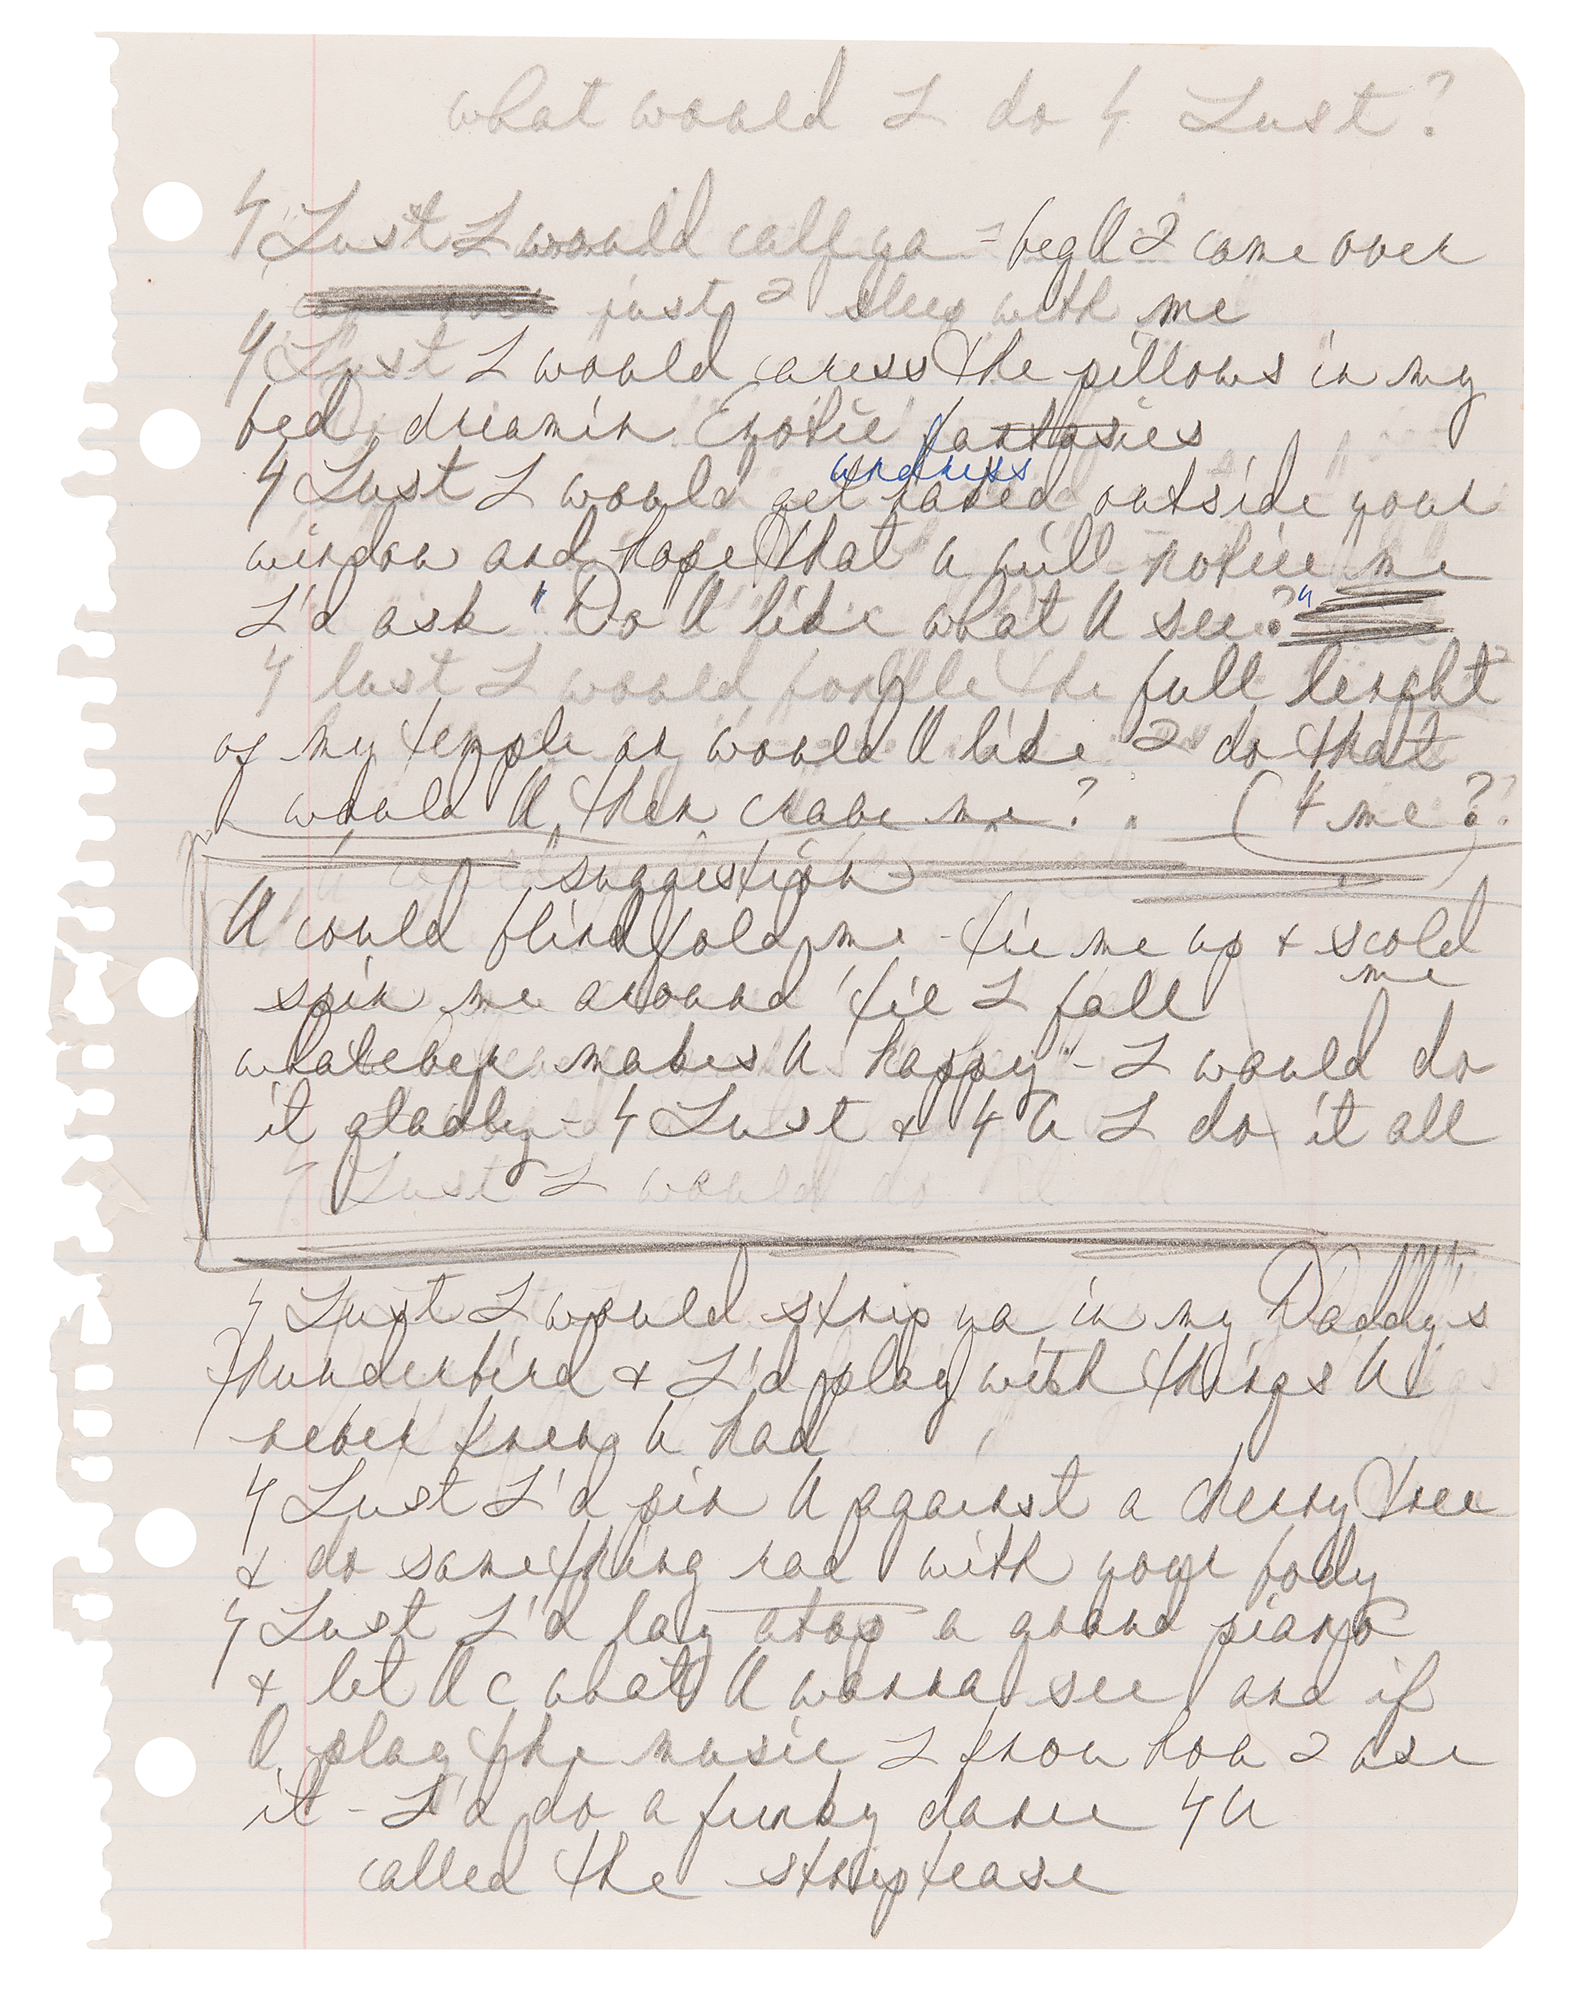 what would I do 4 Lust?
4 Lust I would call ya - beg U 2 come over
just 2 sleep with me
4 Lust I would caress the pillows in my
bed, dreamin Erotic fantasies
undress
4 Lust I would get naked outside your
window and hope that u will notice me
I'd ask "Do U like what U see?"
4 lust I would fondle the full lenght
of my temple or would U like 2 do that
would U then crave me? (4 me??
suggestion
U could blindfold me - tie me up & scold
me
spin me around 'til I fall
whatever makes U happy - I would do
it gladly - 4 Lust & 4 U I do it all
4 Lust I would do it all
4 Lust I would strip ya in my Daddy's
Thunderbird & I'd play with things U
never knew U had
4 Lust I'd pin U against a cherry tree
& do something rad with your body
4 Lust I'd lay atop a grand piano
& let U c what U wanna see and if
U play the music I know how 2 use
it - I'd do a funky dance 4 U
called the striptease